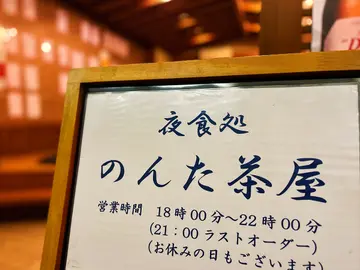 夜食処
のんた茶屋
営業時間 18時00分〜22時00分
(21:00ラストオーダー)
(お休みの日もございます)